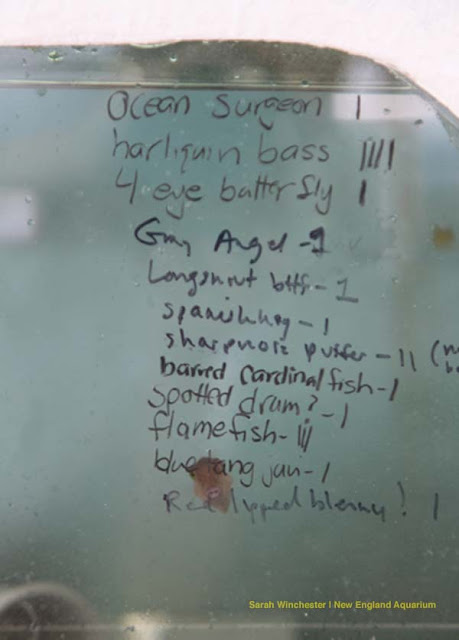 Ocean Surgeon |
harliquin bass ||||
4 eye butterfly |
Gray Angel - 1
Longsnout bttf - 1
spanish hog - 1
sharpnose puffer - 11 (
barred cardinal fish - 1
spotted drum? - 1
flamefish - |||
blue tang juv - 1
Red lipped blenny! 1
Sarah Winchester | New England Aquarium